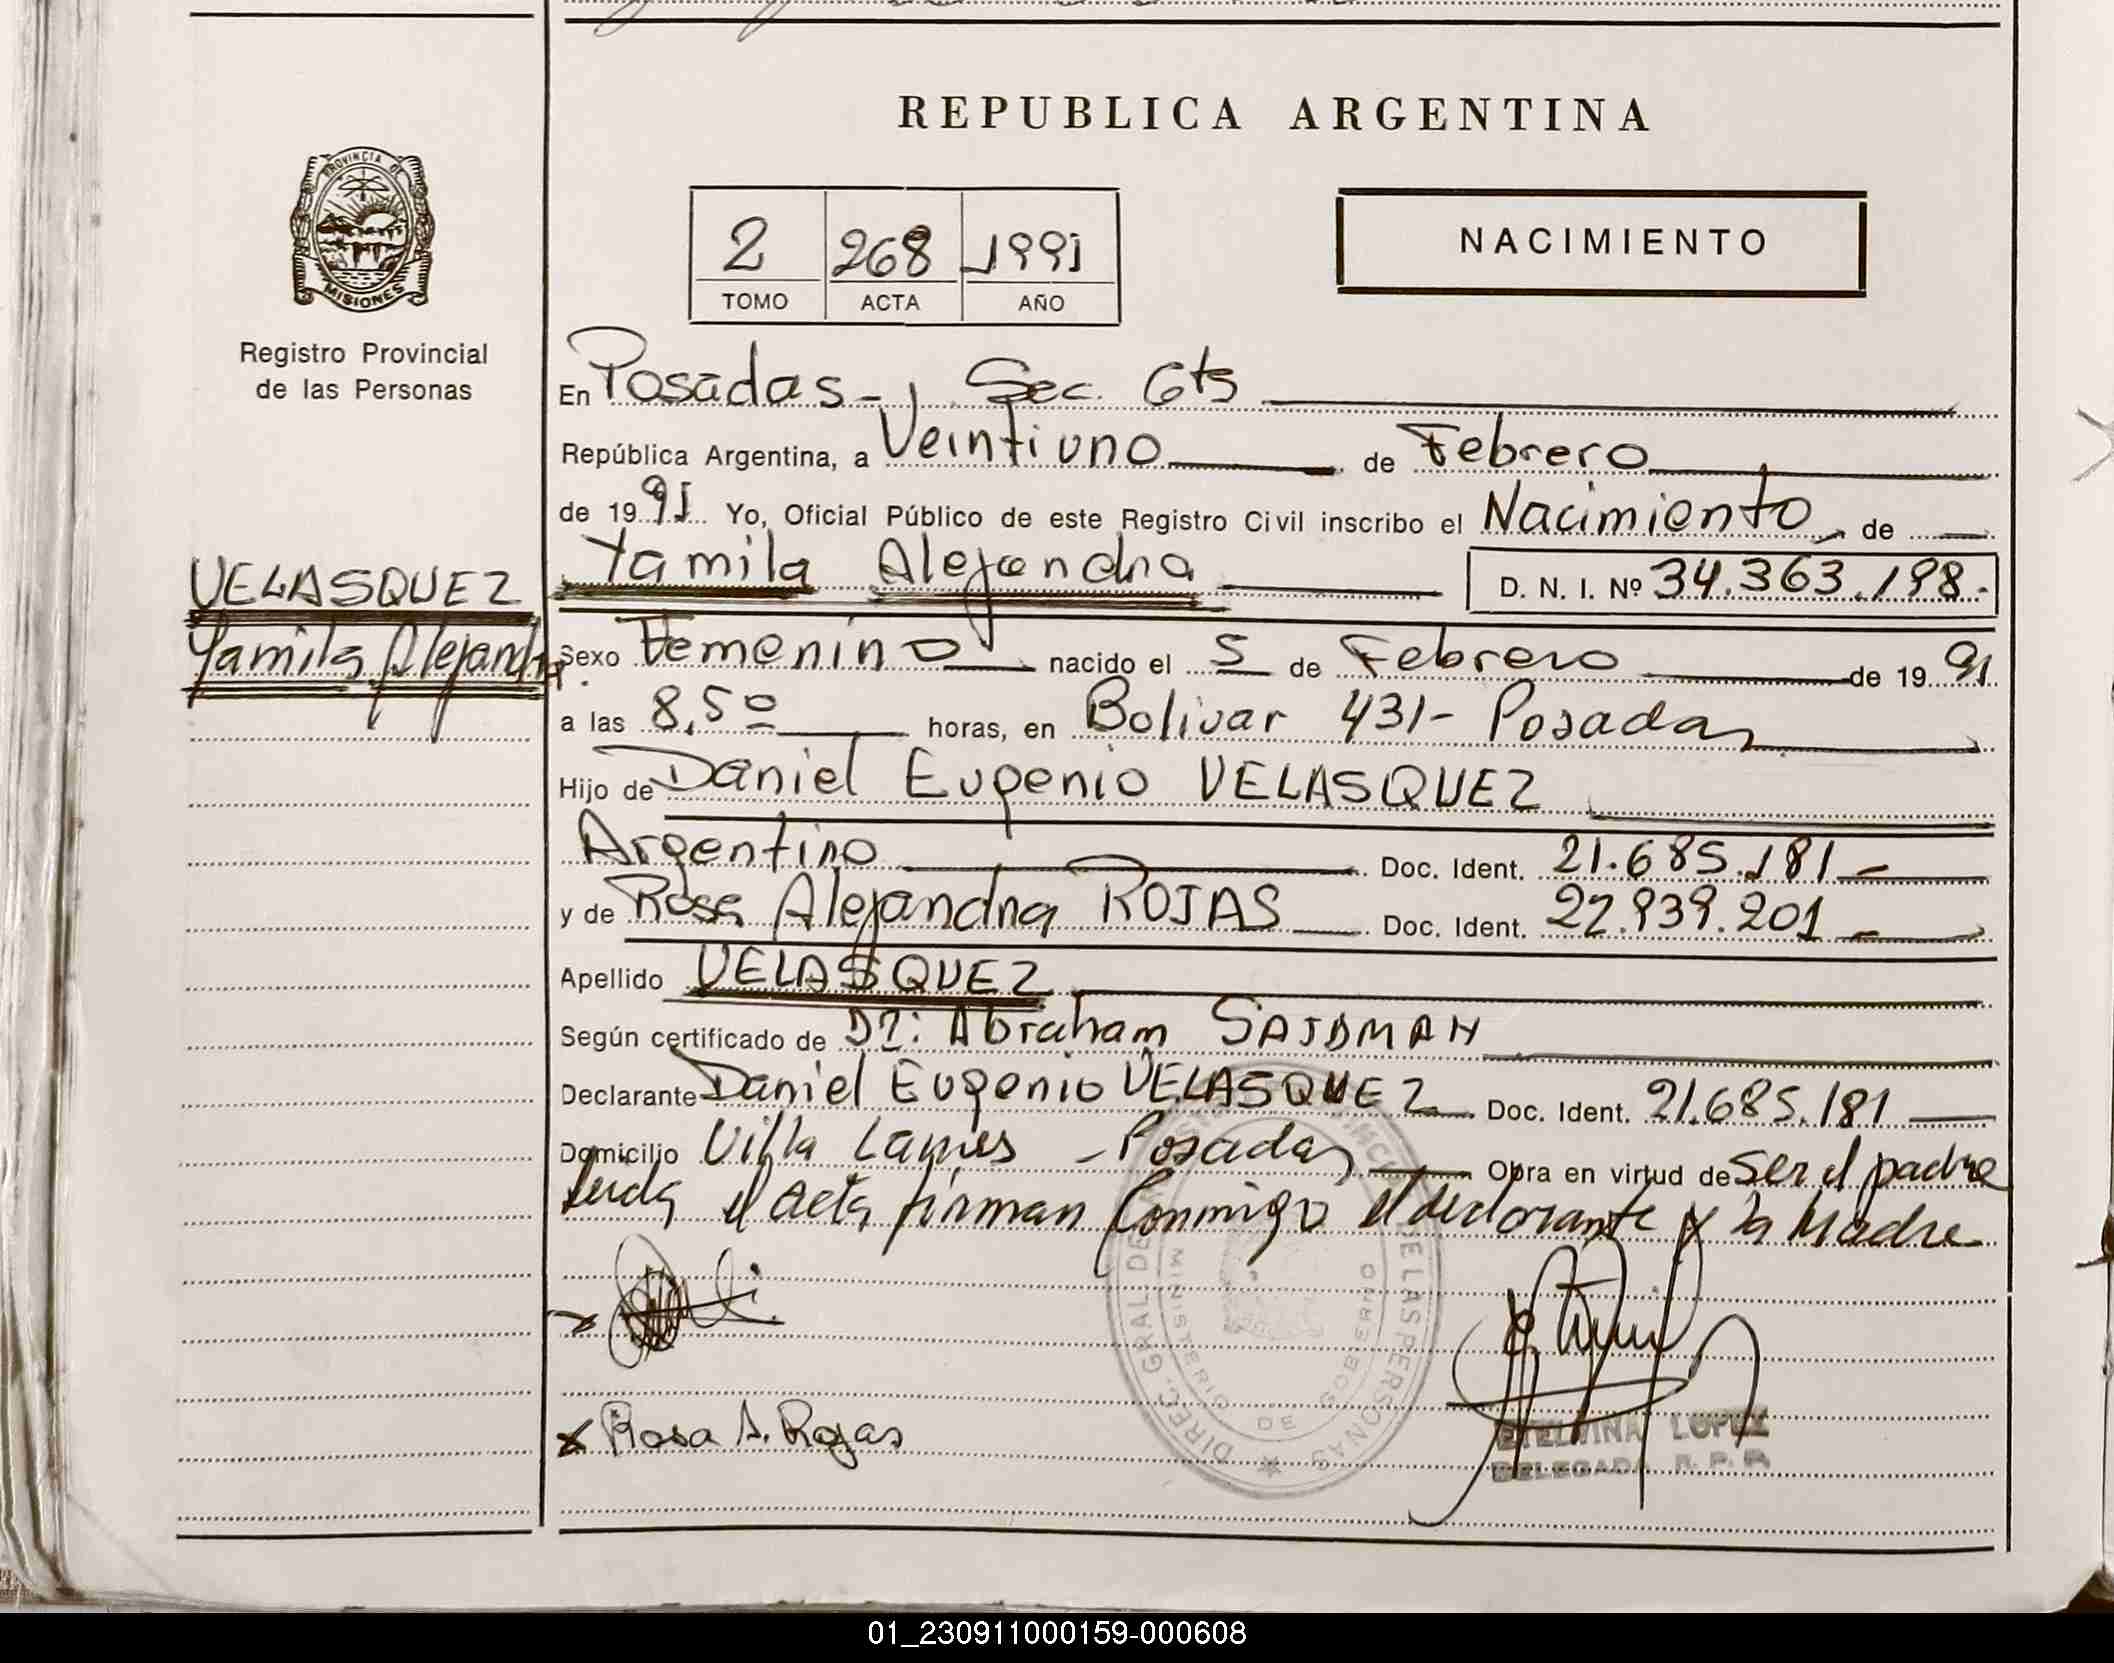 REPUBLICA ARGENTINA
PROVINCIA DE
MISIONES
Registro Provincial
de las Personas
2 268 1991
TOMO ACTA AÑO
NACIMIENTO
En Posadas - Sec. 6ts
República Argentina, a Veintiuno de Febrero
de 1991 Yo, Oficial Público de este Registro Civil inscribo el Nacimiento de
VELASQUEZ
Yamila Alejandra
Yamila Alejandra D. N. I. Nº 34.363.198.-
Sexo Femenino nacido el 5 de Febrero de 1991
a las 8,50 horas, en Bolivar 431- Posadas
Hijo de Daniel Eugenio VELASQUEZ
Argentino Doc. Ident. 21.685.181-
y de Rosa Alejandra ROJAS Doc. Ident. 22.939.201-
Apellido VELASQUEZ
Según certificado de Dr: Abraham SAJDMAN
Declarante Daniel Eugenio VELASQUEZ Doc. Ident. 21.685.181
Domicilio Villa Lanus - Posadas Obra en virtud de ser el padre
Leida el acta firman Conmigo el declarante y la Madre
DIREC. GRAL DE DE LAS PERSONAS
MINISTERIO DE GOBIERNO
x Rosa A. Rojas
ETELVINA LOPEZ
DELEGADA R. P. P.
01_230911000159-000608